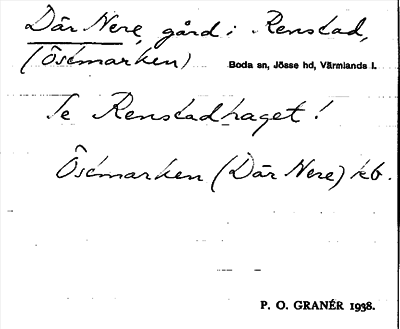 Där Nere, gård i Renstad,
(Östmarken)
Boda sn, Jösse hd, Värmlands l.
Se Renstadhaget!
Östmarken (Där Nere) kb.
P. O. GRANÉR 1938.